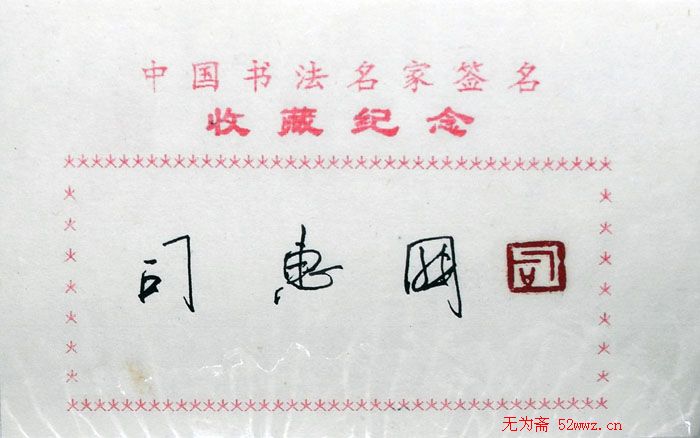 中国书法名家签名
收藏纪念
司惠国
司
无为斋 52wwz.cn